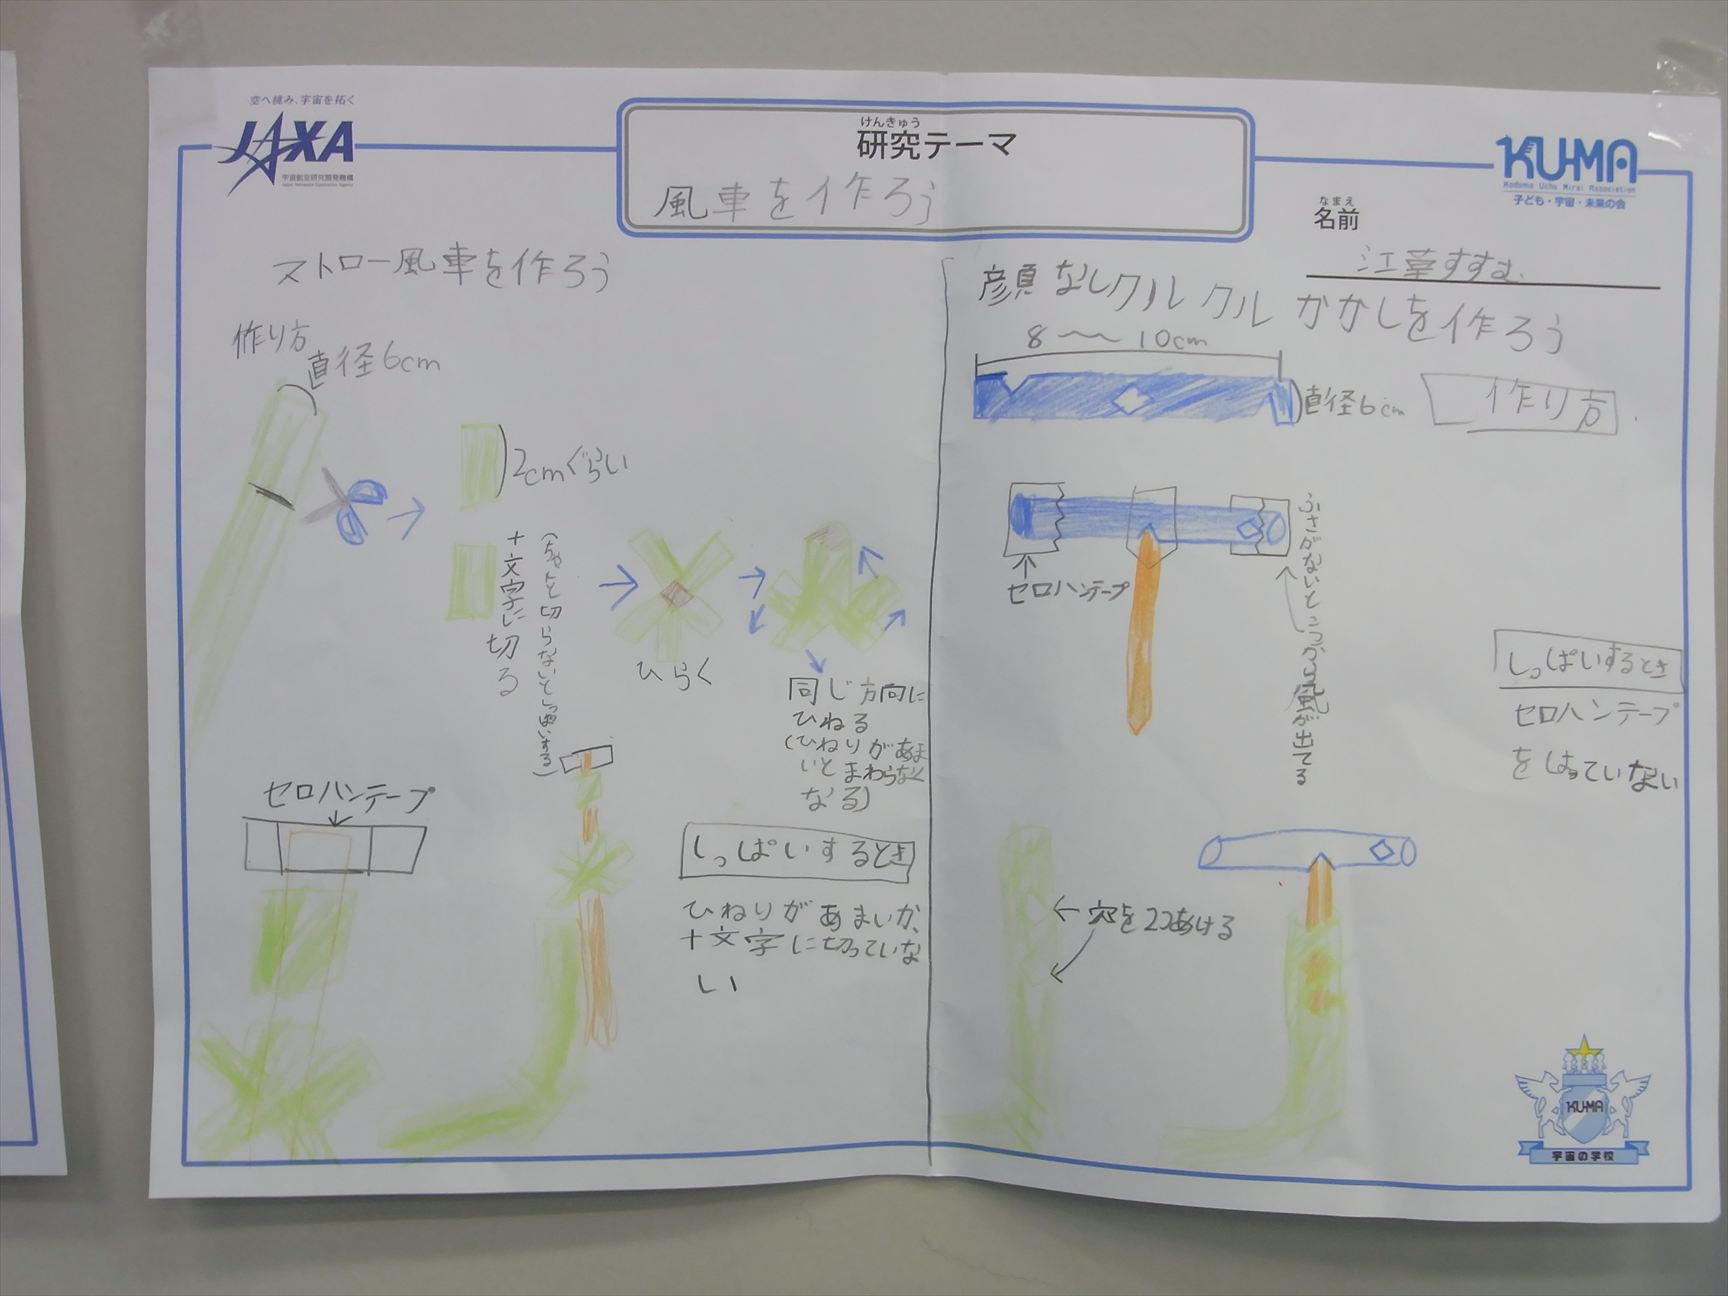 空へ挑み、宇宙を拓く
JAXA
宇宙航空研究開発機構
Japan Aerospace Exploration Agency
けんきゅう
研究テーマ
風車を作ろう
KU-MA
Kodomo Uchu Mirai Association
子ども・宇宙・未来の会
なまえ
名前
すすむ
ストロー風車を作ろう
作り方
直径6cm
2cmぐらい
十文字に切る
(ちゃんと切らないとしっぱいする)
ひらく
同じ方向に
ひねる
(ひねりがあま
いとまわらなく
なる)
セロハンテープ
しっぱいするとき
ひねりがあまいか、
十文字に切っていな
い
顔なしクルクルかかしを作ろう
8〜10cm
直径6cm
作り方
セロハンテープ
ふさがないとこっから風が出てる
しっぱいするとき
セロハンテープ
をはっていない
穴を2つあける
KU-MA
宇宙の学校